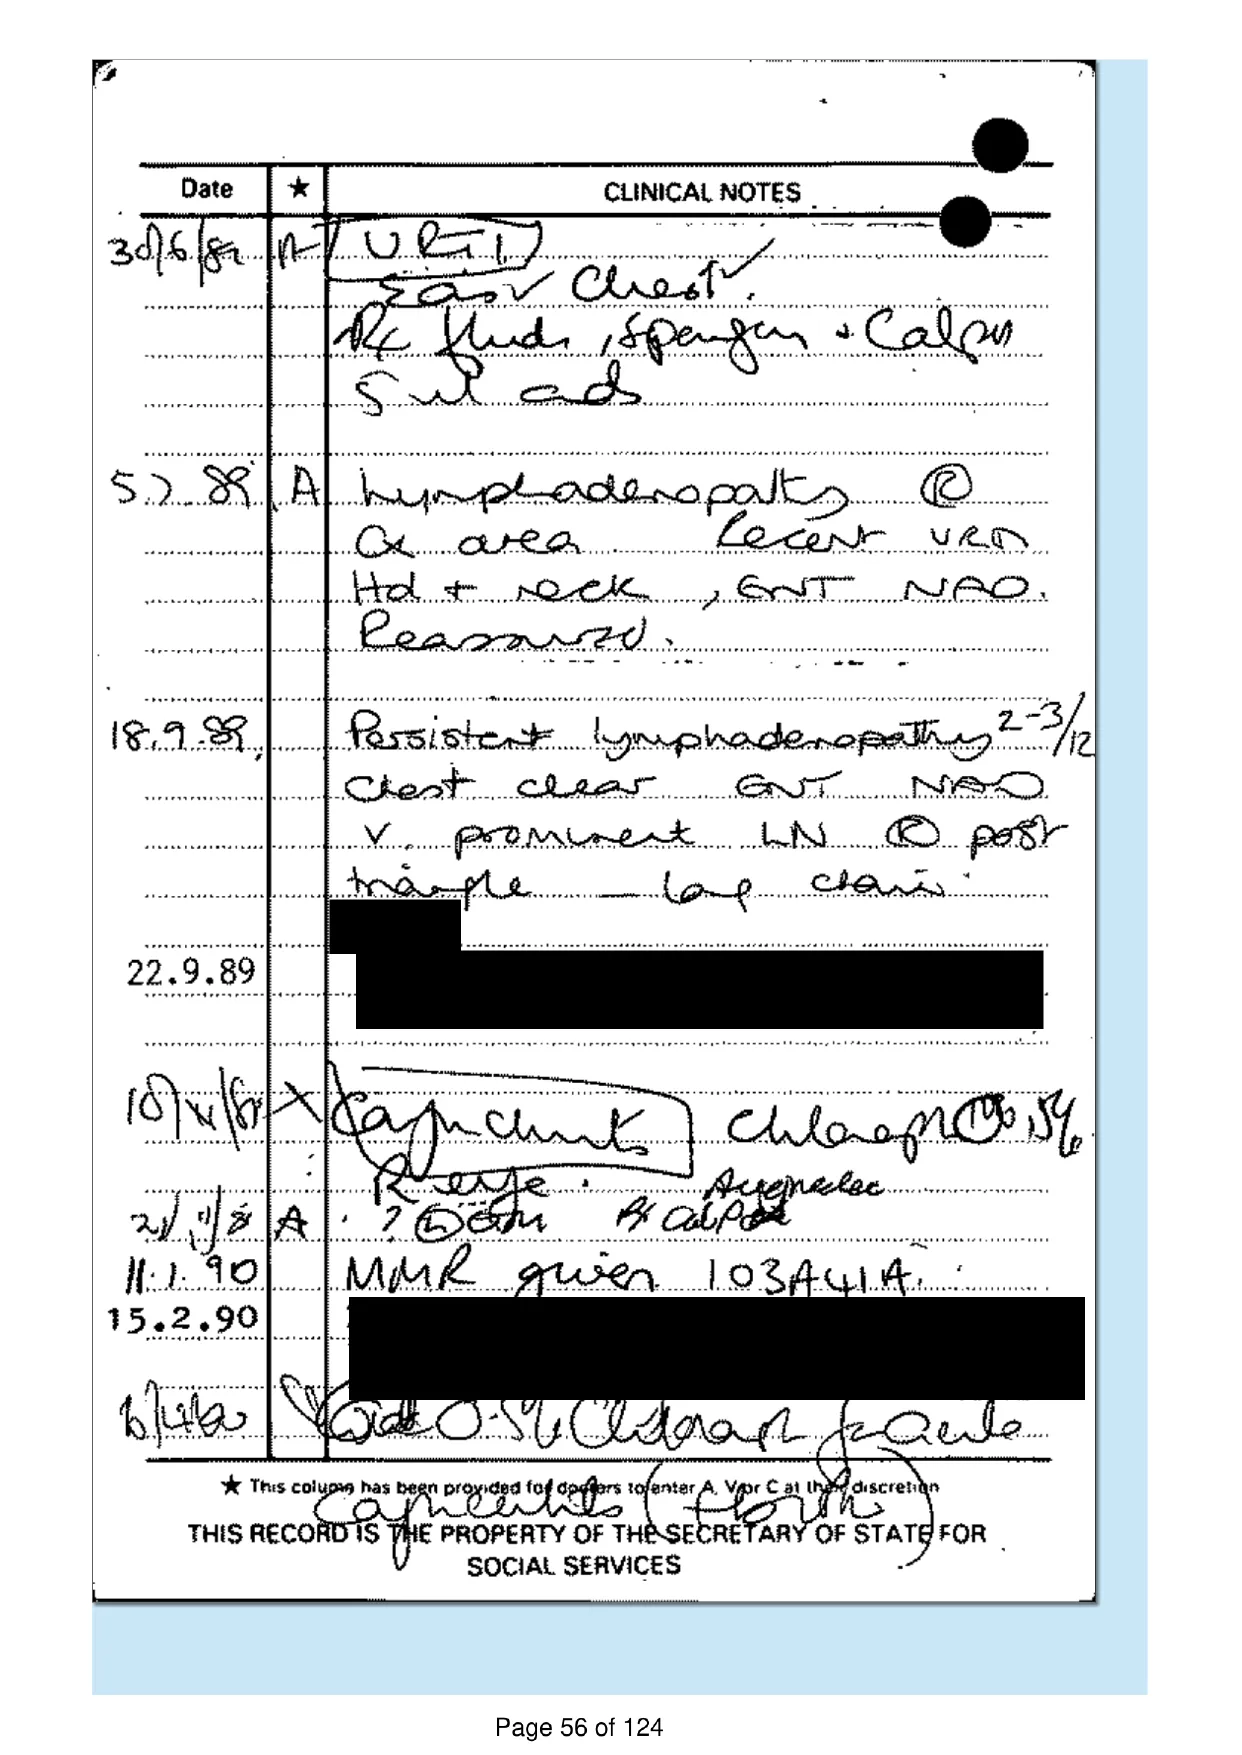 Date ★ CLINICAL NOTES
30/6/89 A URTI
Ears ✓ Chest ✓.
Rx fluids, + Calpol
5ml
5.7.89 A Lymphadenopathy Ⓡ
Cx area Recent URTI
Hd + neck, ENT NAD.
Reassured.
18.9.89. Persistent lymphadenopathy 2-3/12
Chest clear ENT NAD
v. prominent LN Ⓡ post
triangle — long chain.
22.9.89
Conjunctivitis Chloramph 0.5%
R eye.
21/11/8 A . ? Ⓛ OM Rx Calpol
11.1.90 MMR given 103A41A.
15.2.90
0.5% Chloramph for Acute
Conjunctivitis (
★ This column has been provided for doctors to enter A, V or C at their discretion
THIS RECORD IS THE PROPERTY OF THE SECRETARY OF STATE FOR
SOCIAL SERVICES
Page 56 of 124